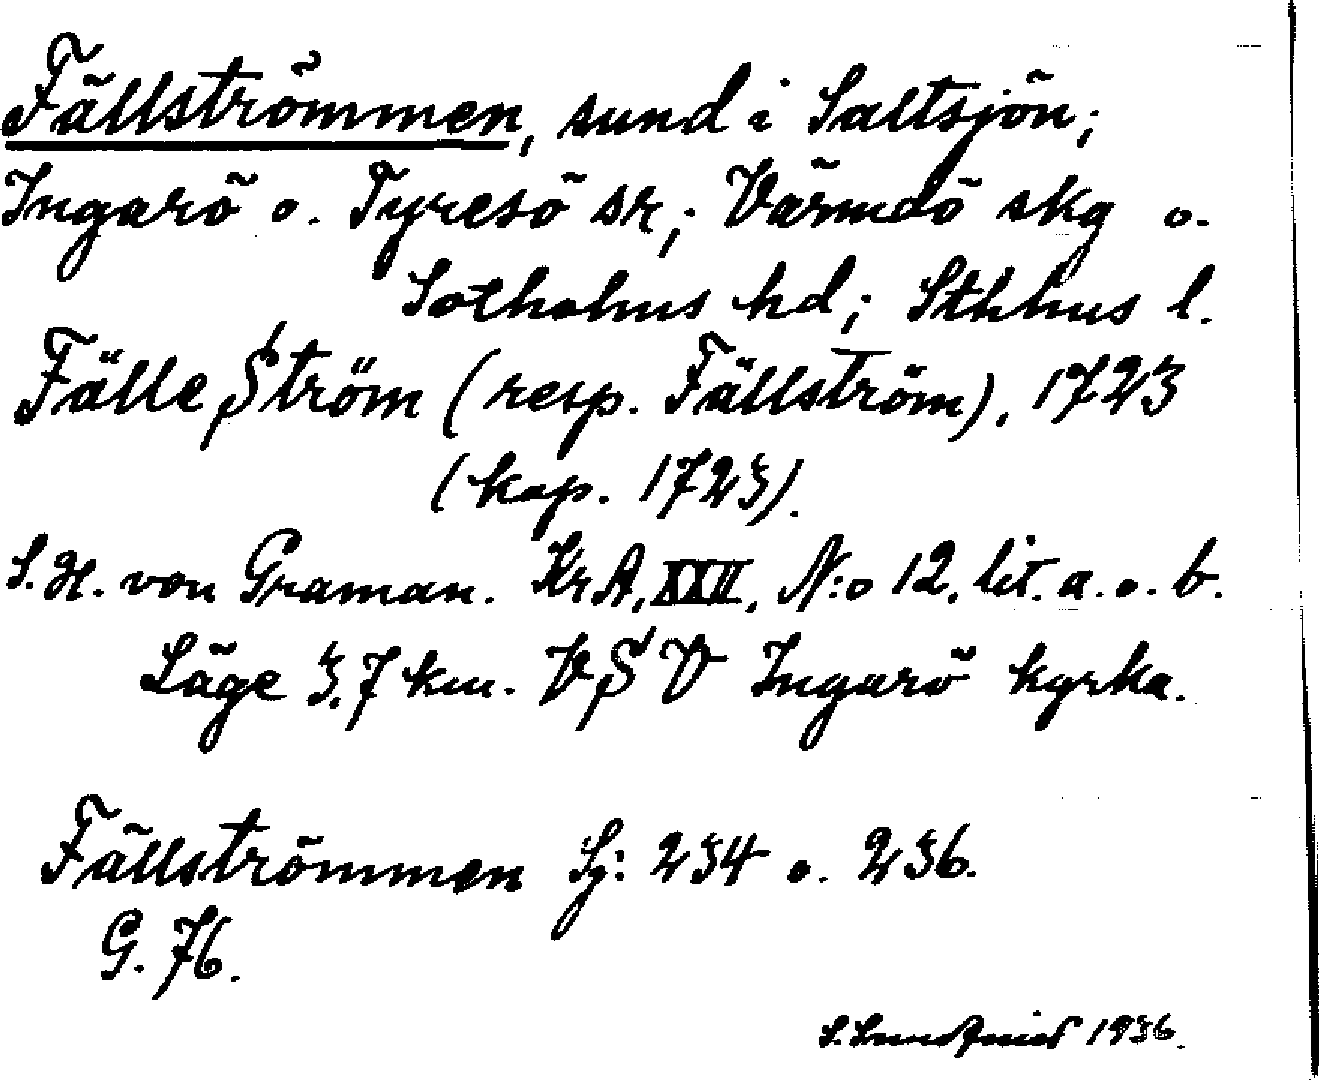 Fällströmmen, sund i Saltsjön;
Ingarö o. Tyresö sr; Värmdö skg o.
Sotholms hd; Sthlms l.
Fälle Ström (resp. Fällström), 1723
(kop. 1723).
S. H. von Graman. KrA, XXII, N:o 12. lit. a. o. b.
Läge 3,7 km. VSV Ingarö kyrka.
Fällströmmen Sj: 234 o. 236.
G. 76.
1936.